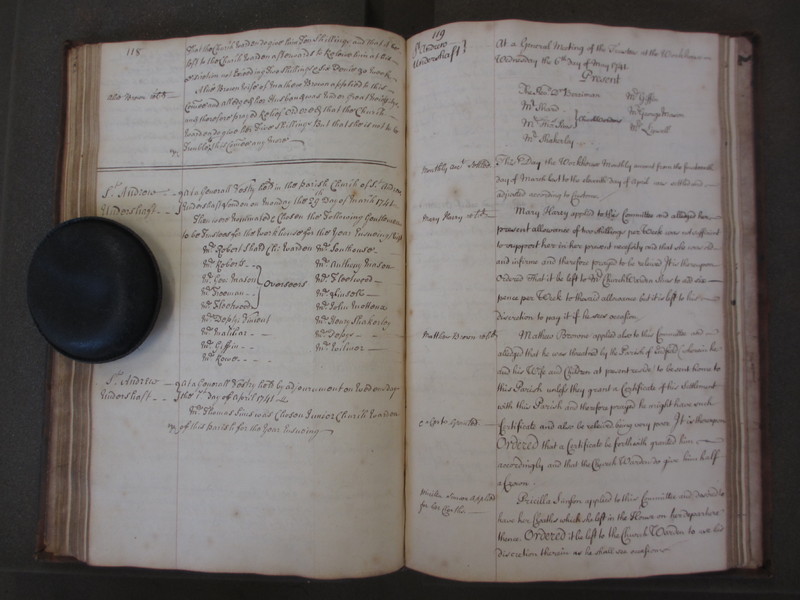 118
that the Church warden do give him Ten Shillings and that it be
left to the Church warden afterwards to Relieve him as Oc-
casion not Exceeding Two shillings
Alice Brown wife of Mathew Brown applied to this
Comittee and alledged her Husband was Under Great
and therefore prayed Relief Ordered that the Church
warden do give her Five Shillings But that she is not to
trouble this Comittee any more
Alice Brown
St. Andrew
Undershaft
At a Generall Vestry held in the Parish Church of St. Andrew
Undershaft London on Monday the 29th Day of March 1741
There were Nominated & Chosen the Following Gentlemen
to be Trustees for the Workhouse for the Year Ensuing
Mr. Robert Shard Ch: warden
Mr. Roberts
Mr. Geo: Mason
Mr. Freeman
Mr. Fleetwood
Overseers
Mr. Joseph
Mr.
Mr. Giffin
Mr. Rowe
Mr. Southouse
Mr. Anthony Mason
Mr. Fleetwood
Mr.
Mr. John
Mr. Henry Shakerley
Mr.
Mr.
St. Andrew
Undershaft
At a Generall Vestry held by adjournment on Wednesday
the 7th day of April 1741
Mr. Thomas Sims was Chosen Junior Church Warden
of this parish for the Year Ensuing
119
St. Andrew
Undershaft
At a General Meeting of the Trustees at the Workhouse
Wednesday the 6th Day of May 1741
Present
The Revd. Dr. Berriman
Mr. Shard
Mr. Sims
Churchwardens
Mr. Shakerley
Mr. Giffin
Mr. George Mason
Mr.
Monthly acct. settled
This Day the Workhouse Monthly account from the fourteenth
day of March last to the eleventh day of April was settled and
adjusted according to Custom
Mary Harry
Mary Harry applied to this Committee and alledged her
present allowance of two shillings per Week was not sufficient
to support her in her present necessity and that she was old
and infirm and therefore prayed to be relieved It is thereupon
Ordered That it be left to Mr. Church Warden Sims to add six
pence per Week to the said allowance but it is left to his
discretion to pay it if he sees occasion
Matthew Brown
Mathew Browne applied also to this Committee and
alledged that he was threatned by the Parish of wherein he
and his Wife and Children at present reside to be sent home to
this Parish unless they grant a Certificate of his Settlement
with this Parish and therefore prayed he might have such
Certificate and also be relieved being very poor It is thereupon
Ordered that a Certificate be forthwith granted him
accordingly and that the Church Warden do give him half
a Crown
Granted
Pricilla Simson Applied
for her Cloaths
Pricilla Simson applied to this Committee and desired to
have her Cloaths which she left in the House on her departure
thence Ordered it be left to the Church Warden to use his
discretion therein as he shall see occasion